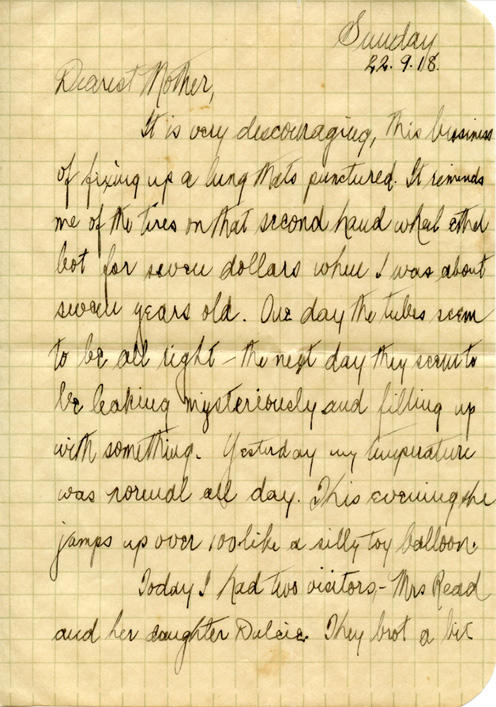 Sunday
22.9.18.
Dearest Mother,
It is very discouraging, this business
of fixing up a lung thats punctured. It reminds
me of the tires on that second hand wheel ethel
bot for seven dollars when I was about
seven years old. One day the tubes seem
to be all right – the next day they seem to
be leaking mysteriously and filling up
with something. Yesterday my temperature
was normal all day. This evening she
jamps up over 100 like a silly toy balloon.
Today I had two visitors – Mrs Read
and her daughter Dulcie. They brot a bit